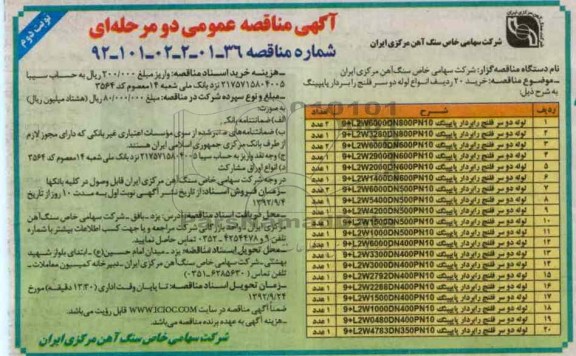 نوبت دوم
آگهی مناقصه عمومی دو مرحله‌ای
شماره مناقصه ۳۶-۰۱-۲-۰۲-۱۰۱-۹۲
شرکت سهامی خاص سنگ آهن مرکزی ایران
نام دستگاه مناقصه گزار: شرکت سهامی خاص سنگ‌آهن مرکزی ایران
-موضوع مناقصه: خرید ۲۰ ردیف انواع لوله دو سر فلنج رابردار پایپینگ
به شرح ذیل:
ردیف شرح تعداد
۱ لوله دو سر فلنج رابردار پایپینگ 9+L2W6000DN800PN10
۲ لوله دو سر فلنج رابردار پایپینگ 9+L2W3280DN800PN10
۳ لوله دو سر فلنج رابردار پایپینگ 9+L2W6000DN600PN10
۴ لوله دو سر فلنج رابردار پایپینگ 9+L2W2900DN600PN10
۵ لوله دو سر فلنج رابردار پایپینگ
۶ لوله دو سر فلنج رابردار پایپینگ 9+L2W6000DN500PN10
۷ لوله دو سر فلنج رابردار پایپینگ 9+L2W5400DN500PN10
۸ لوله دو سر فلنج رابردار پایپینگ 9+L2W4200DN500PN10
۹ لوله دو سر فلنج رابردار پایپینگ
۱۰ لوله دو سر فلنج رابردار پایپینگ
۱۱ لوله دو سر فلنج رابردار پایپینگ 9+L2W6000DN400PN10
۱۲ لوله دو سر فلنج رابردار پایپینگ
۱۳ لوله دو سر فلنج رابردار پایپینگ 9+L2W3300DN400PN10
۱۴ لوله دو سر فلنج رابردار پایپینگ
۱۵ لوله دو سر فلنج رابردار پایپینگ 9+L2W2792DN400PN10
۱۶ لوله دو سر فلنج رابردار پایپینگ 9+L2W2288DN400PN10
۱۷ لوله دو سر فلنج رابردار پایپینگ 9+L2W1500DN400PN10
۱۸ لوله دو سر فلنج رابردار پایپینگ 9+L2W1000DN400PN10
۱۹ لوله دو سر فلنج رابردار پایپینگ 9+L2W0480DN400PN10
۲۰ لوله دو سر فلنج رابردار پایپینگ 9+L2W4783DN350PN10
-هزینه خرید اسناد مناقصه: واریز مبلغ ۲۰۰/۰۰۰ ریال به حساب سیبا
۲۱۷۵۷۱۵۸۰۴۰۰۵ نزد بانک ملی شعبه ۱۴معصوم کد ۳۵۶۴
-مبلغ و نوع سپرده شرکت در مناقصه: مبلغ ۸۰/۰۰۰/۰۰۰ ریال (هشتاد میلیون ریال)
به صورت:
الف) ضمانتنامه بانکی
ب) ضمانتنامه‌های صادر شده از سوی مؤسسات اعتباری غیربانکی که دارای مجوز لازم
از طرف بانک مرکزی جمهوری اسلامی ایران هستند.
ج) وجه نقد واریز به حساب سیبا ۲۱۷۵۷۱۵۸۰۴۰۰۵ نزد بانک ملی شعبه ۱۴معصوم کد ۳۵۶۴
د) انواع اوراق مشارکت
در وجه شرکت سهامی خاص سنگ آهن مرکزی ایران قابل وصول در کلیه بانکها
-زمان فروش اسناد: از تاریخ نشر آگهی نوبت اول به مدت ۱۰ روز از تاریخ
۱۳۹۲/۹/۴
-محل دریافت اسناد مناقصه: آدرس: یزد-بافق-شرکت سهامی خاص سنگ آهن
مرکزی ایران-واحد بازرگانی شرکت مراجعه و یا جهت کسب اطلاعات بیشتر با شماره
تلفن ۹ و ۴۲۵۴۴۷۸-۰۳۵۲ تماس حاصل نمایید.
-محل تحویل اسناد مناقصه: یزد-میدان امام حسین(ع)-ابتدای بلوار شهید
بهشتی-شرکت سهامی خاص سنگ آهن مرکزی ایران-دبیرخانه کمیسیون معاملات-
تلفن تماس (۶۲۸۵۶۳۰-۰۳۵۱)
-زمان تحویل اسناد مناقصه: تا پایان وقت اداری (۱۳:۳۰ دقیقه) مورخ
۱۳۹۲/۹/۲۴
ضمناً آگهی مناقصه در سایت WWW.ICIOC.COM قابل رؤیت می‌باشد.
-هزینه آگهی به عهده برنده مناقصه می‌باشد.
شرکت سهامی خاص سنگ آهن مرکزی ایران